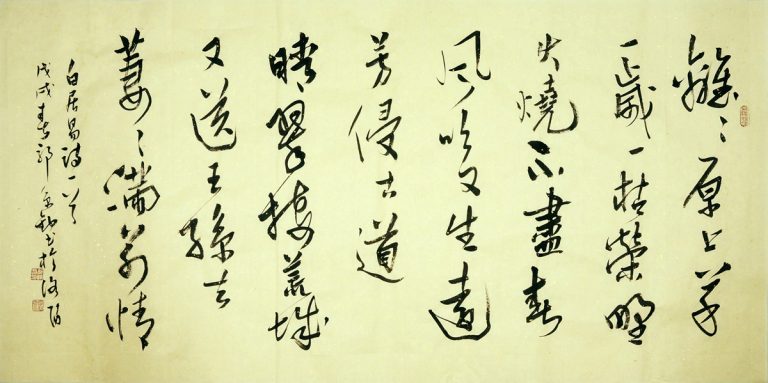 離〻原上草
一歲一枯榮野
火燒不盡春
風吹又生遠
芳侵古道
晴翠接荒城
又送王孫去
萋〻滿別情
白居易詩一首
戊戌春郭書於洛陽